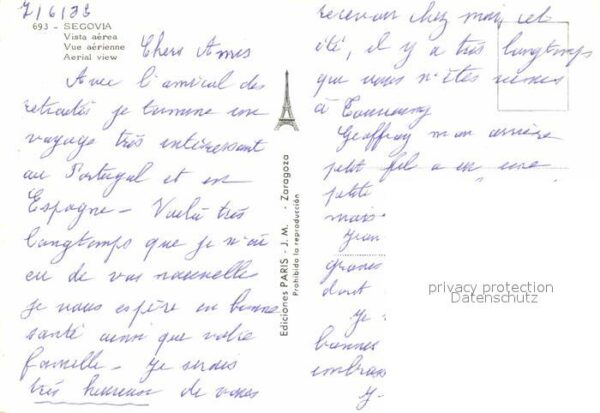 7/6/83
693 - SEGOVIA
Vista aérea
Vue aérienne
Aerial view
Chers Amis
Avec l'amical des
retraités je termine un
voyage très intéressant
au Portugal et en
Espagne - Voilà très
longtemps que je n'ai
eu de vos nouvelles
je vous espère en bonne
santé ainsi que votre
famille - je serais
très heureuse de vous
Ediciones PARIS - J. M. - Zaragoza
Prohibida la reproducción
recevoir chez moi cet
été, il y a très longtemps
que vous n'êtes venus
à
Geoffroy mon arrière
petit fil a eu une
petite
mais
Jean
grands
dont
Je
bonnes
embrass
privacy protection
Datenschutz